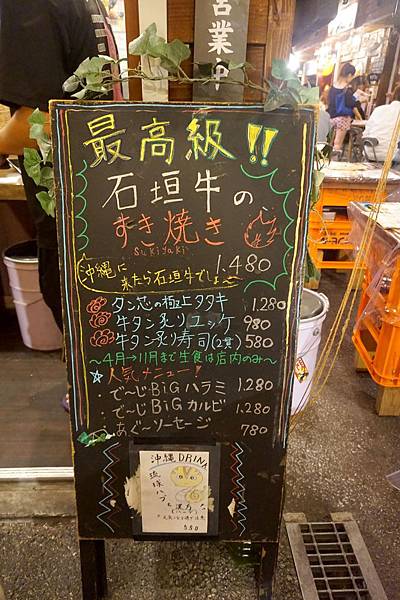 営業中
最高級!!
石垣牛の
すき焼き
sukiyaki
1.480
沖縄に
来たら石垣牛でしょ〜
タン芯の極上タタキ 1.280
牛タン炙りユッケ 980
牛タン炙寿司(2貫) 580
〜4月→11月まで生食は店内のみ〜
☆人気メニュー!
・で〜じBiGハラミ 1.280
・で〜じBiGカルビ 1.280
・あぐ〜ソーセージ 780
沖縄DRINK
琉球ハブ
550